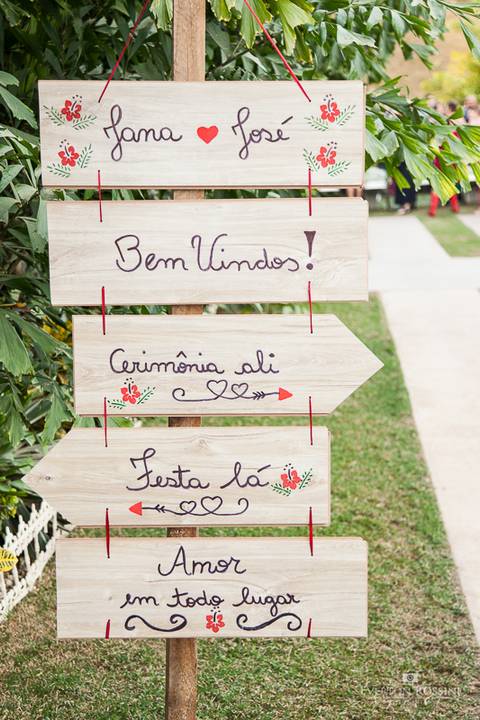 Jana ♥ José
Bem Vindos!
Cerimônia ali
Festa lá
Amor
em todo lugar
EVERTON ROSSINI